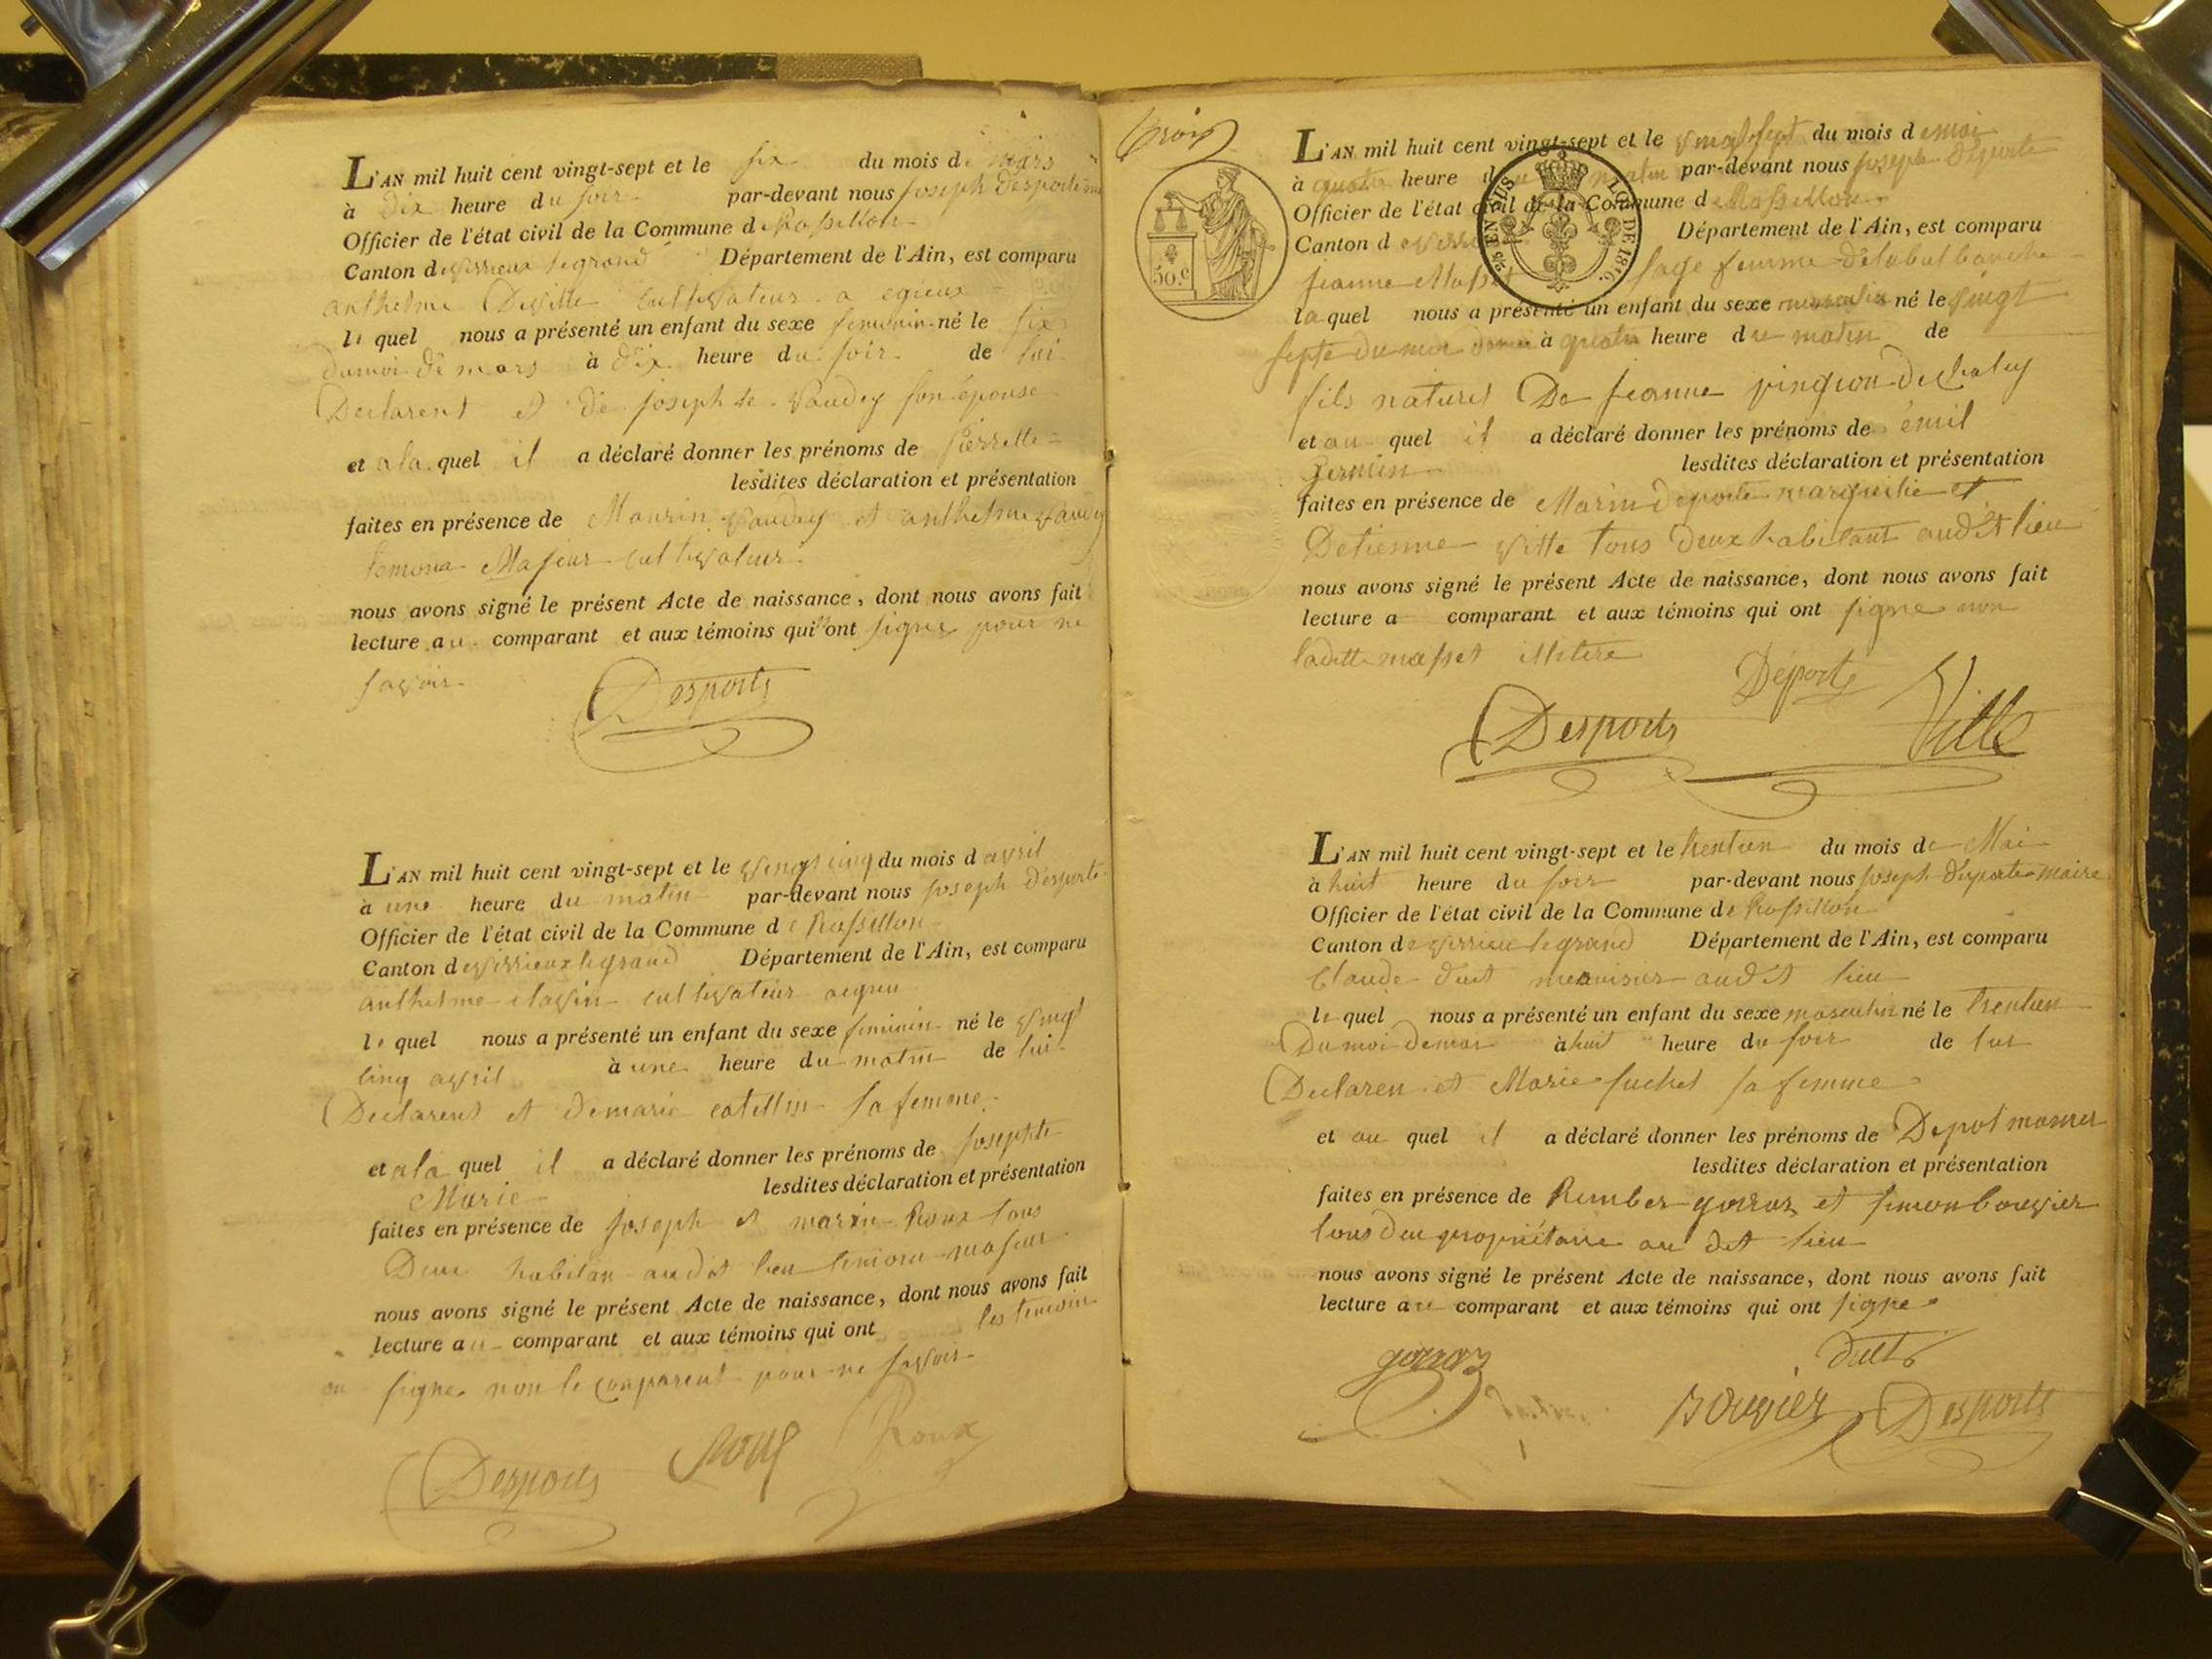 L'AN mil huit cent vingt-sept et le six du mois de mars
à dix heure du soir par-devant nous joseph Desporte
Officier de l'état civil de la Commune de Rossillon
Canton de virrieux legrand Département de l'Ain, est comparu
anthelme Deville cultivateur a egieux
le quel nous a présenté un enfant du sexe feminin né le six
du moi de mars à dix heure du soir de lui
Declarent et de josephte vaudey son épouse
et a la quel il a déclaré donner les prénoms de Pierrette
lesdites déclaration et présentation
faites en présence de Maurin vaudey et anthelme vaudey
Majeur cultivateur
nous avons signé le présent Acte de naissance, dont nous avons fait
lecture au comparant et aux témoins qui ont signe pour ne
savoir
Desports
L'AN mil huit cent vingt-sept et le vingt cinq du mois d avril
à une heure du matin par-devant nous joseph Desporte
Officier de l'état civil de la Commune de Rossillon
Canton de virrieux legrand Département de l'Ain, est comparu
anthelme clavin cultivateur
le quel nous a présenté un enfant du sexe feminin né le vingt
cinq avril à une heure du matin de lui
Declarent et de marie catellin sa femme
et a la quel il a déclaré donner les prénoms de josephte
Marie lesdites déclaration et présentation
faites en présence de joseph et marin Roux tous
Deux habitan audit lieu
nous avons signé le présent Acte de naissance, dont nous avons fait
lecture au comparant et aux témoins qui ont les temoin
on signe non le comparent pour ne savoir
Desports Roux Roux
Trois
50.c
25 EN SUS LOI DE 1816.
L'AN mil huit cent vingt-sept et le vingt sept du mois de mai
à quatre heure du matin par-devant nous joseph Desporte
Officier de l'état civil de la Commune de Rossillon
Canton de Département de l'Ain, est comparu
jeanne Masset sage femme
la quel nous a présenté un enfant du sexe masculin né le vingt
septe du moi à quatre heure du matin de
fils naturel De jeanne
et au quel il a déclaré donner les prénoms de émil
Germin lesdites déclaration et présentation
faites en présence de Marin deporte et
Detienne ville tous deux habitant audit lieu
nous avons signé le présent Acte de naissance, dont nous avons fait
lecture a comparant et aux témoins qui ont signe non
laditte masset
Déports
Desports Ville
L'AN mil huit cent vingt-sept et le trentun du mois de Mai
à huit heure du soir par-devant nous joseph Desporte maire
Officier de l'état civil de la Commune de Rossillon
Canton de virrieu legrand Département de l'Ain, est comparu
Claude duet menuisier audit lieu
le quel nous a présenté un enfant du sexe masculin né le trentun
Du moi à huit heure du soir de lui
Declaren et Marie suchet sa femme
et au quel il a déclaré donner les prénoms de
lesdites déclaration et présentation
faites en présence de gorraz et simon bouvier
tous deu propriétaire au dit lieu
nous avons signé le présent Acte de naissance, dont nous avons fait
lecture au comparant et aux témoins qui ont signe
gorraz duet
Bouvier Desports